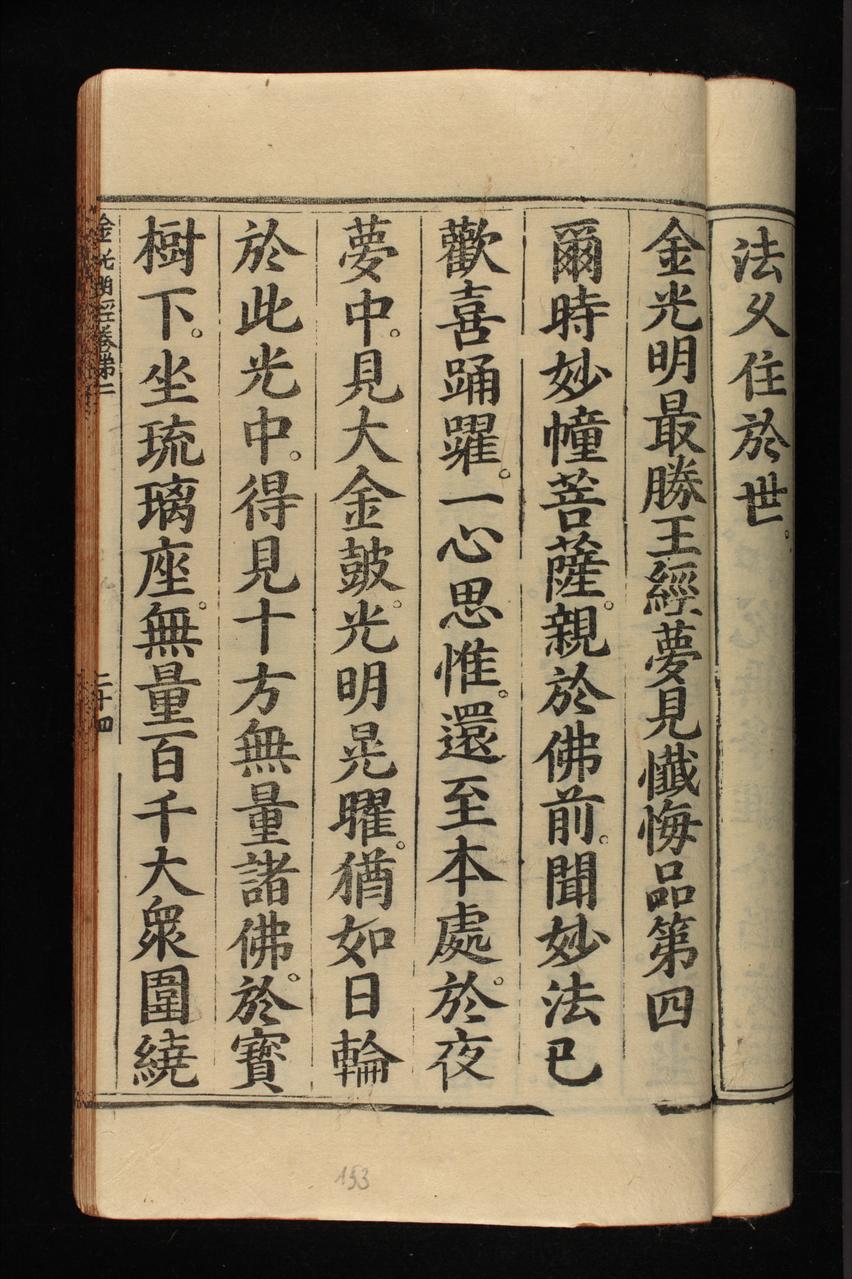 法久住於世。
金光明最勝王經夢見懺悔品第四
爾時妙幢菩薩。親於佛前。聞妙法已
歡喜踊躍。一心思惟。還至本處。於夜
夢中。見大金皷。光明晃曜。猶如日輪
於此光中。得見十方無量諸佛。於寶
樹下。坐琉璃座。無量百千大衆圍繞
金光明經卷第二
二十四
153